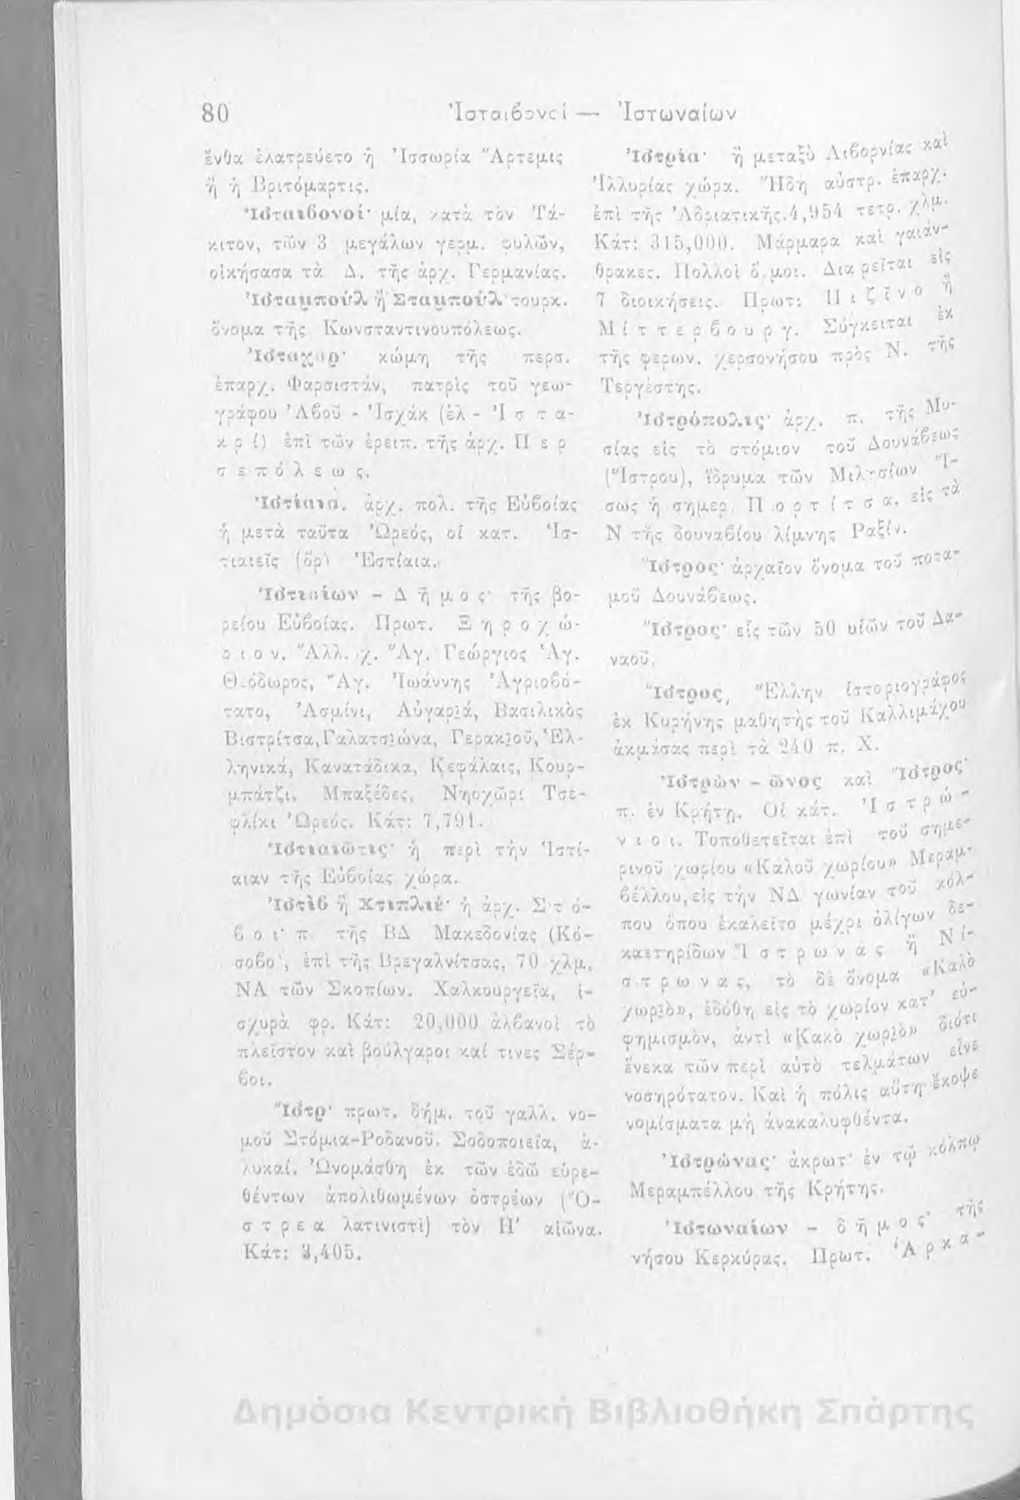 80 Ἰσταιβονοί — Ἰστωναίων
ἔνθα ἐλατρεύετο ἡ Ἰσσωρία Ἄρτεμις
ἢ ἡ Βριτόμαρτις.
Ἰσταιβονοί· μία, κατὰ τὸν Τά-
κιτον, τῶν 3 μεγάλων γερμ. φυλῶν,
οἰκήσασα τὰ Δ. τῆς ἀρχ. Γερμανίας.
Ἰσταμποὺλ ἢ Σταμποὺλ· τουρκ.
ὄνομα τῆς Κωνσταντινουπόλεως.
Ἰσταχὰρ· κώμη τῆς περσ.
ἐπαρχ. Φαρσιστάν, πατρὶς τοῦ γεω-
γράφου Ἀβοῦ - Ἰσχάκ (ἐλ - Ἰ σ τ α-
κ ρ ί) ἐπὶ τῶν ἐρειπ. τῆς ἀρχ. Π ε ρ
σ ε π ό λ ε ω ς.
Ἱστίαια. ἀρχ. πολ. τῆς Εὐβοίας
ἡ μετὰ ταῦτα Ὠρεός, οἱ κατ. Ἱσ-
τιαιεῖς (ὅρ) Ἑστίαια.
Ἱστιαίων - Δ ῆ μ ο ς· τῆς βο-
ρείου Εὐβοίας. Πρωτ. Ξ η ρ ο χ ώ-
ρ ι ο ν. Ἄλλ. χ. Ἅγ. Γεώργιος Ἅγ.
Θεόδωρος, Ἅγ. Ἰωάννης Ἀγριοβό-
τατο, Ἀσμίνι, Αὐγαριά, Βασιλικὸς
Βιστρίτσα, Γαλατσιώνα, Γερακιοῦ, Ἑλ-
ληνικά, Κανατάδικα, Κεφάλαις, Κουρ-
μπάτζι, Μπαξέδες, Νηοχῶρι Τσε-
φλίκι Ὠρεός. Κάτ: 7,791.
Ἱστιαιῶτις· ἡ περὶ τὴν Ἱστί-
αιαν τῆς Εὐβοίας χώρα.
Ἰστὶβ ἢ Χτιπλιὲ· ἡ ἀρχ. Σ τ ό-
β ο ι· π. τῆς ΒΔ Μακεδονίας (Κό-
σοβο), ἐπὶ τῆς Βρεγαλνίτσας, 70 χλμ.
ΝΑ τῶν Σκοπίων. Χαλκουργεῖα, ἰ-
σχυρὰ φρ. Κάτ: 20,000 ἀλβανοὶ τὸ
πλεῖστον καὶ βούλγαροι καί τινες Σέρ-
βοι.
Ἴστρ· πρωτ. δήμ. τοῦ γαλλ. νο-
μοῦ Στόμια-Ροδανοῦ. Σοδοποιεῖα, ἁ-
λυκαί. Ὠνομάσθη ἐκ τῶν ἐδῶ εὑρε-
θέντων ἀπολιθωμένων ὀστρέων (Ὄ-
σ τ ρ ε α λατινιστὶ) τὸν Η΄ αἰῶνα.
Κάτ: 3,405.
Ἰστρία· ἡ μεταξὺ Λιβορνίας καὶ
Ἰλλυρίας χώρα. Ἤδη αὐστρ. ἐπαρχ.
ἐπὶ τῆς Ἀδριατικῆς. 4,954 τετρ. χλμ.
Κάτ: 315,000. Μάρμαρα καὶ γαιάν-
θρακες. Πολλοὶ ὅρμοι. Διαιρεῖται εἰς
7 διοικήσεις. Πρωτ: Π ι ζ ῖ ν ο ἢ
Μ ί τ τ ε ρ β ο υ ρ γ. Σύγκειται ἐκ
τῆς φερων. χερσονήσου πρὸς Ν. τῆς
Τεργέστης.
Ἰστρόπολις· ἀρχ. π. τῆς Μυ-
σίας εἰς τὸ στόμιον τοῦ Δουνάβεως
(Ἴστρου), ἵδρυμα τῶν Μιλησίων Ἴ-
σως ἡ σημερ. Π ο ρ τ ί τ σ α. εἰς τὰ
Ν τῆς δουναβίου λίμνης Ραξίν.
Ἴστρος· ἀρχαῖον ὄνομα τοῦ ποτα-
μοῦ Δουνάβεως.
Ἴστρος· εἷς τῶν 50 υἱῶν τοῦ Δα-
ναοῦ.
Ἴστρος, Ἕλλην ἱστοριογράφος
ἐκ Κυρήνης μαθητὴς τοῦ Καλλιμάχου
ἀκμάσας περὶ τὰ 240 π. Χ.
Ἰστρὼν - ῶνος καὶ Ἴστρος·
π. ἐν Κρήτῃ. Οἱ κάτ. Ἰ σ τ ρ ώ-
ν ι ο ι. Τοποθετεῖται ἐπὶ τοῦ σημε-
ρινοῦ χωρίου «Καλοῦ χωρίου» Μεραμ-
βέλλου, εἰς τὴν ΝΔ γωνίαν τοῦ κόλ-
που ὅπου ἐκαλεῖτο μέχρι ὀλίγων δε-
καετηρίδων Ἴ σ τ ρ ω ν α ς ἢ Ν ί-
σ τ ρ ω ν α ς, τὸ δὲ ὄνομα «Καλὸ
χωριὸ», ἐδόθη εἰς τὸ χωρίον κατ' εὐ-
φημισμὸν, ἀντὶ «Κακὸ χωριὸ» διότι
ἕνεκα τῶν περὶ αὐτὸ τελμάτων εἶνε
νοσηρότατον. Καὶ ἡ πόλις αὕτη ἔκοψε
νομίσματα μὴ ἀνακαλυφθέντα.
Ἰστρώνας· ἀκρωτ· ἐν τῷ κόλπῳ
Μεραμπέλλου τῆς Κρήτης.
Ἰστωναίων - δ ῆ μ ο ς· τῆς
νήσου Κερκύρας. Πρωτ. Ἀ ρ κ α-
Δημόσια Κεντρική Βιβλιοθήκη Σπάρτης